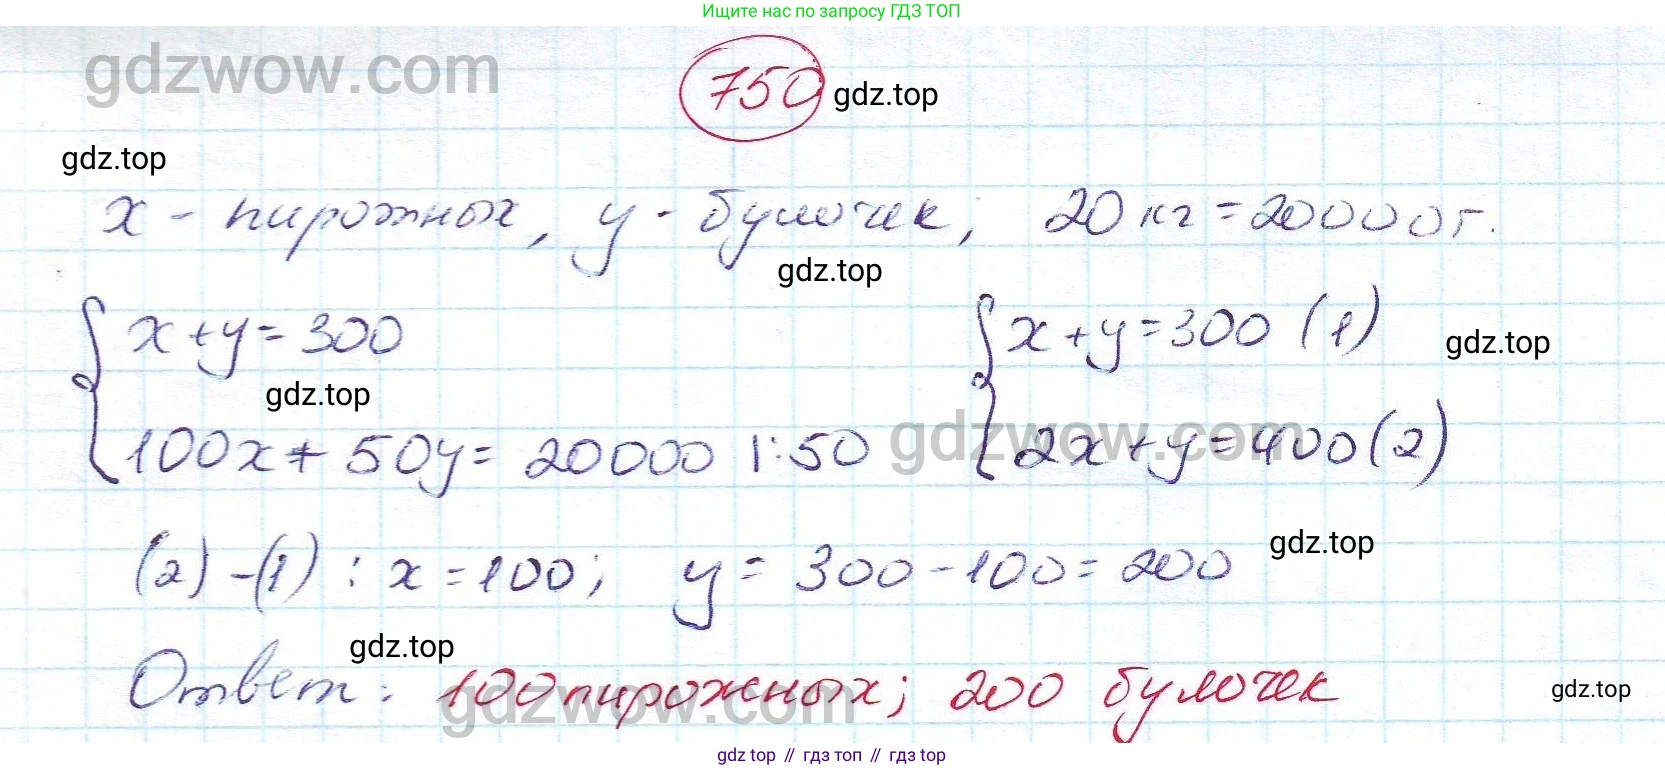 Ищите нас по запросу ГДЗ ТОП
gdzwow.com
750 gdz.top
gdz.top
x - пирожных, y - булочек, 20 кг = 20000 г.
gdz.top
{ x + y = 300 { x + y = 300 (1) gdz.top
gdz.top
100x + 50y = 20000 |:50 2x + y = 400 (2)
gdzwow.com
gdz.top
(2) - (1) : x = 100; y = 300 - 100 = 200
gdz.top
Ответ: 100 пирожных; 200 булочек
gdz.top
gdzwow.com
gdz top // гдз топ // гдз top